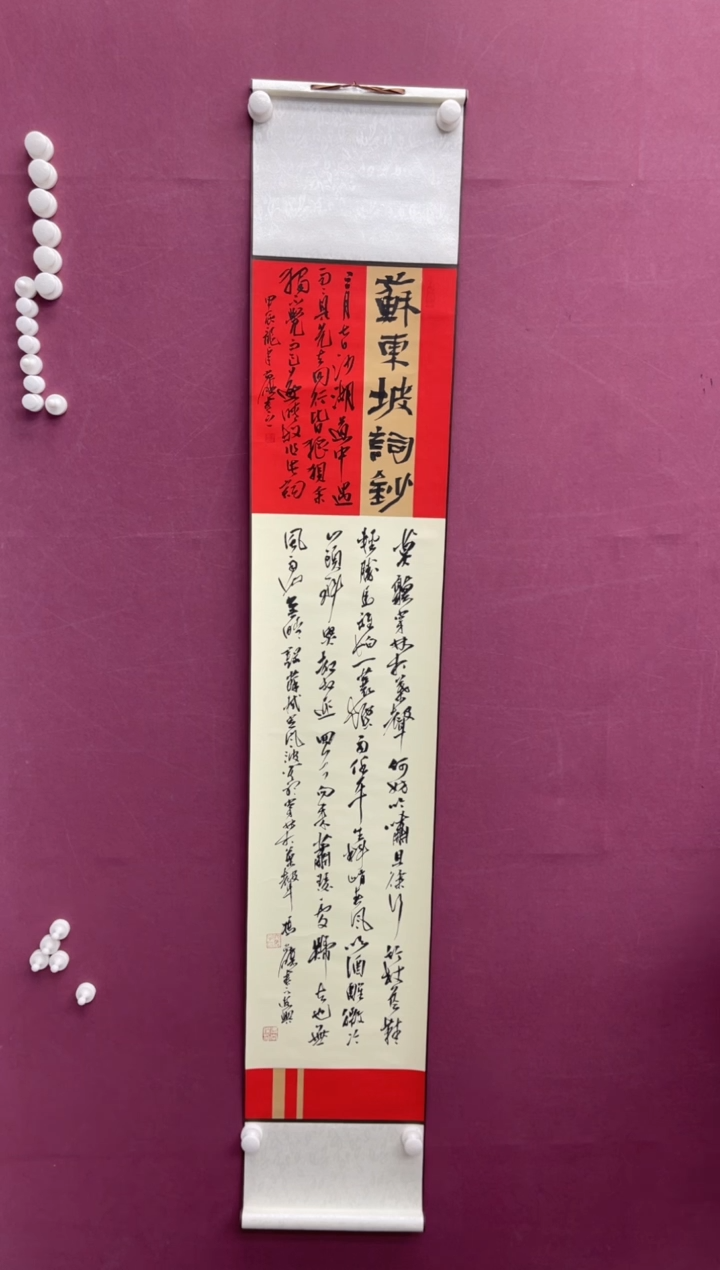 蘇東坡詞鈔
三月七日沙湖道中遇
雨雨具先去同行皆狼狽余
獨不覺已而遂晴故作此詞
莫聽穿林打葉聲何妨吟嘯且徐行竹杖芒鞋
輕勝馬誰怕一蓑煙雨任平生料峭春風吹酒醒微冷
山頭斜照卻相迎回首向來蕭瑟處歸去也無
風雨也無晴錄蘇軾定風波莫聽穿林打葉聲